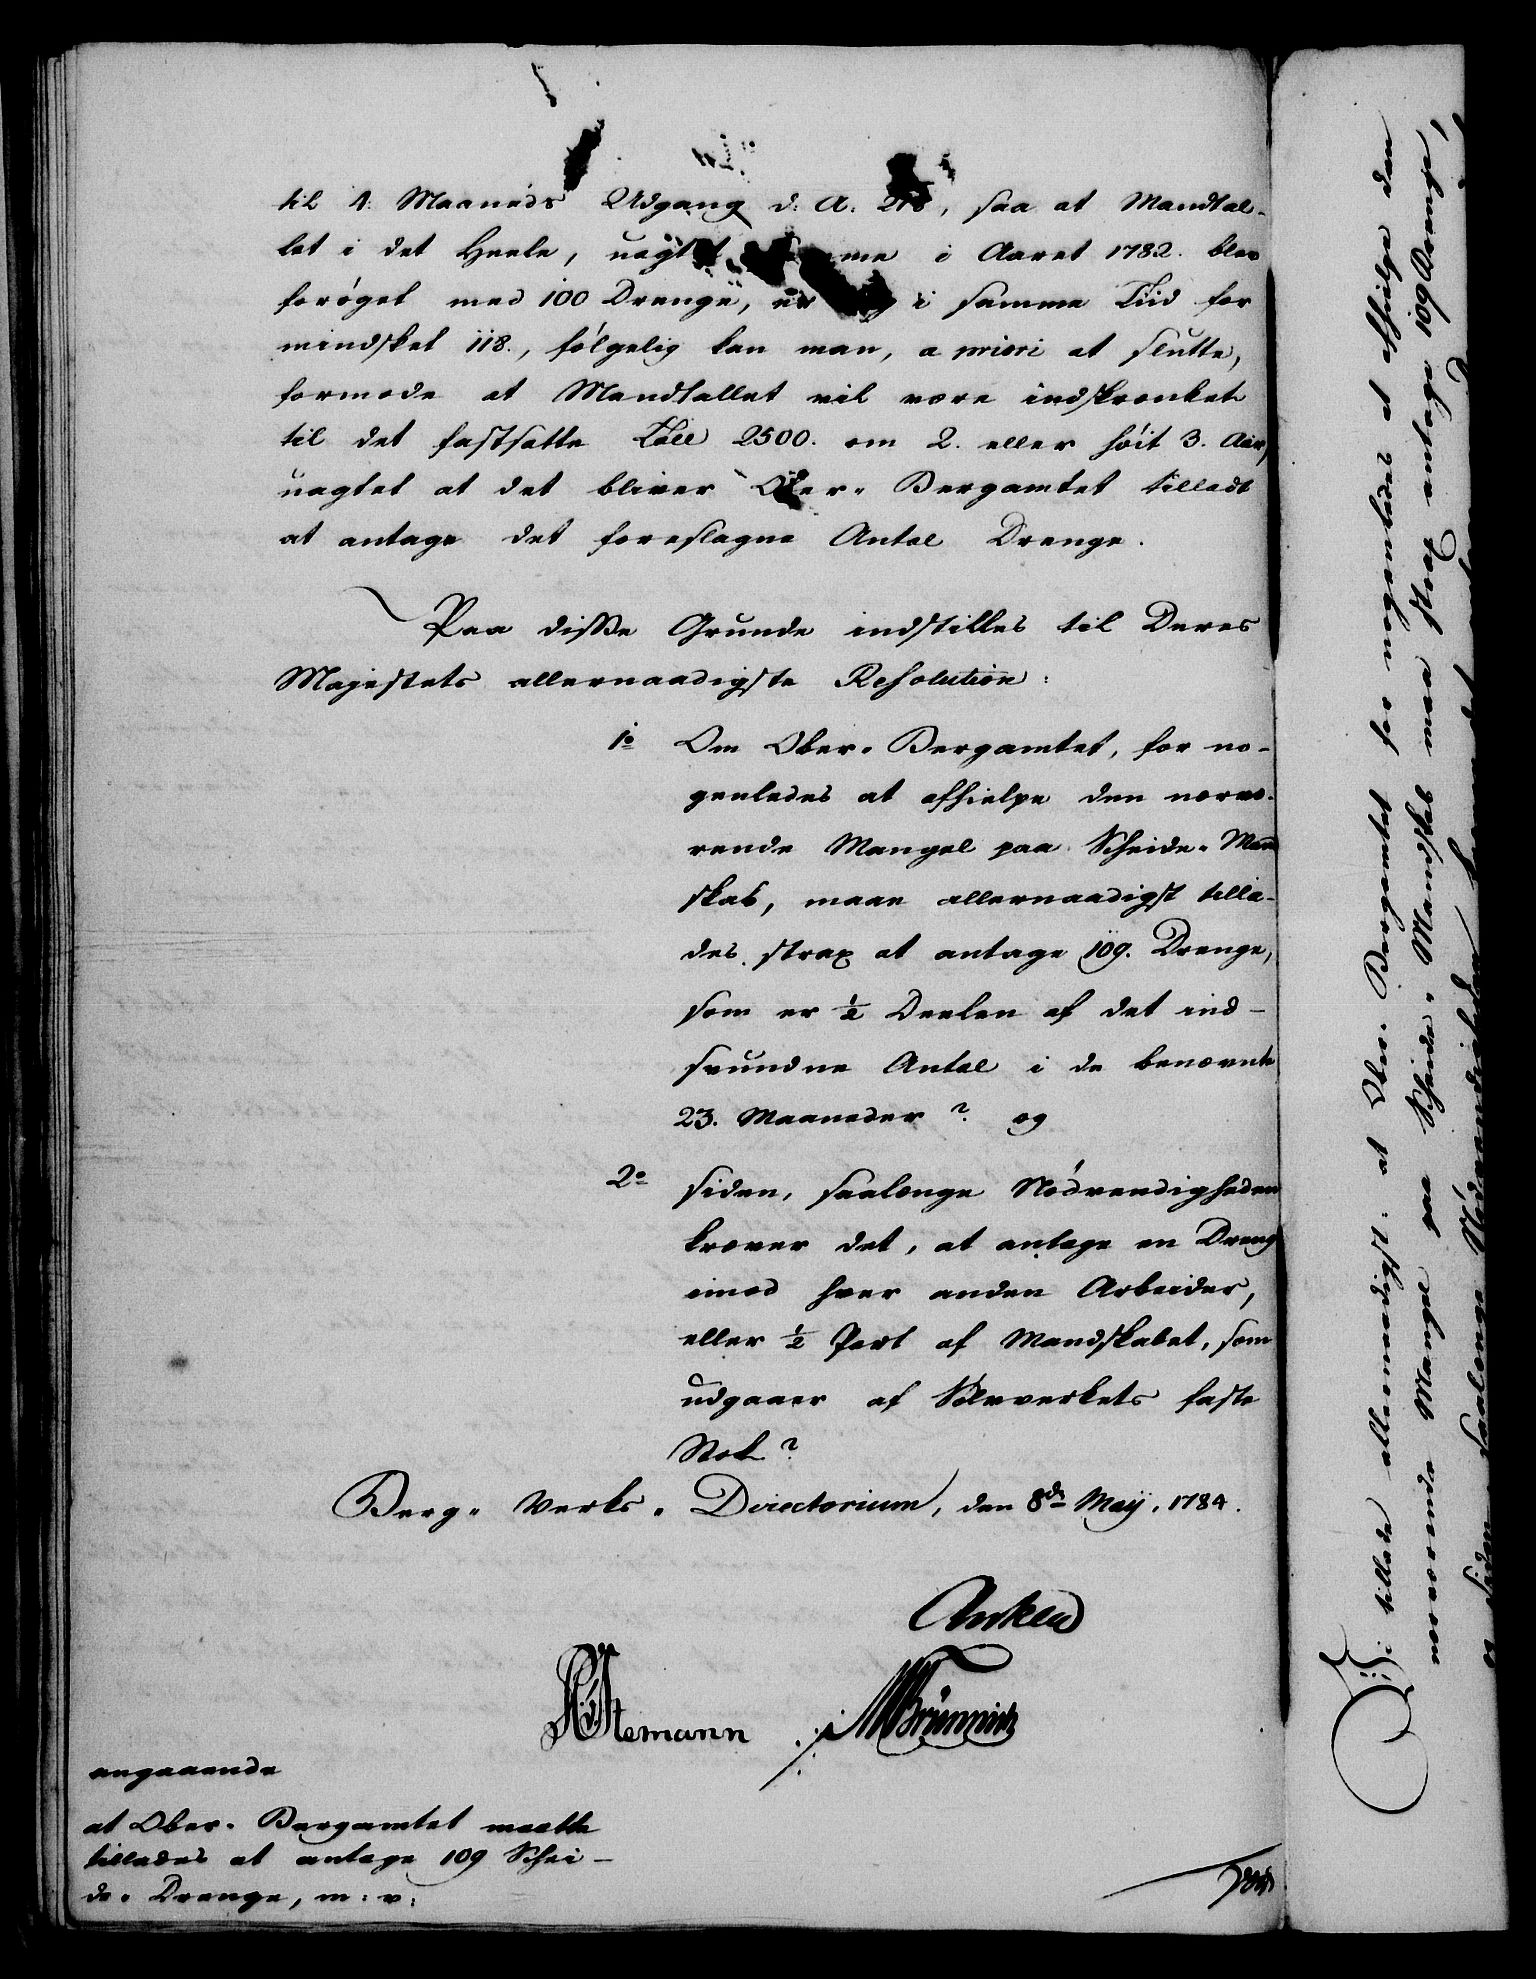 til 1. Maaneds Udgang d. A. 218, saa at Mandtal-
let i det Heele, uagtet i Aaret 1782. blev
forøget med 100 Drenge, er i samme Tiid for
mindsket 118., følgelig kan man, a priori at slutte,
formode at Mandtallet vil være indskrænket
til det fastsatte Tall 2500. om 2. eller høit 3. Aar,
uagtet at det bliver Ober-Bergamtet tilladt
at antage det foreslagne Antal Drenge.
Paa disse Grunde indstilles til Deres
Majestets allernaadigste Resolution:
1o Om Ober-Bergamtet, for no-
genledes at afhielpe den nærvæ-
rende Mangel paa Scheide-Mand
skab, maae allernaadigst tilla-
des strax at antage 109. Drenge,
som er ½ Deelen af det ind-
svundne Antal i de benævnte
23. Maaneder? og
2o siden, saalænge Nødvendigheden
kræver det, at antage en Dreng
imod hver anden Arbeider,
eller ½ Part af Mandskabet, som
udgaaer af Sølvverkets faste
Stok?
Berg-Verks-Directorium, den 8de Maÿ. 1784.
Anker
Stemann MBrünnich
angaaende
at Ober-Bergamtet maatte
tillades at antage 109 Schei-
de-Drenge, m: v:
Vi tillade allernaadigst: at Ober-Bergamtet for nogenledes at afhielpe den
nærværende Mangel paa Scheide-Mandskab maa strax antage 109 Drenge,
og siden, saalænge Nødvendigheden